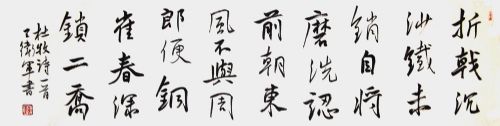 折戟沉
沙鐵未
銷自將
磨洗認
前朝東
風不與周
郎便銅
雀春深
鎖二喬
杜牧诗一首
衛軍書